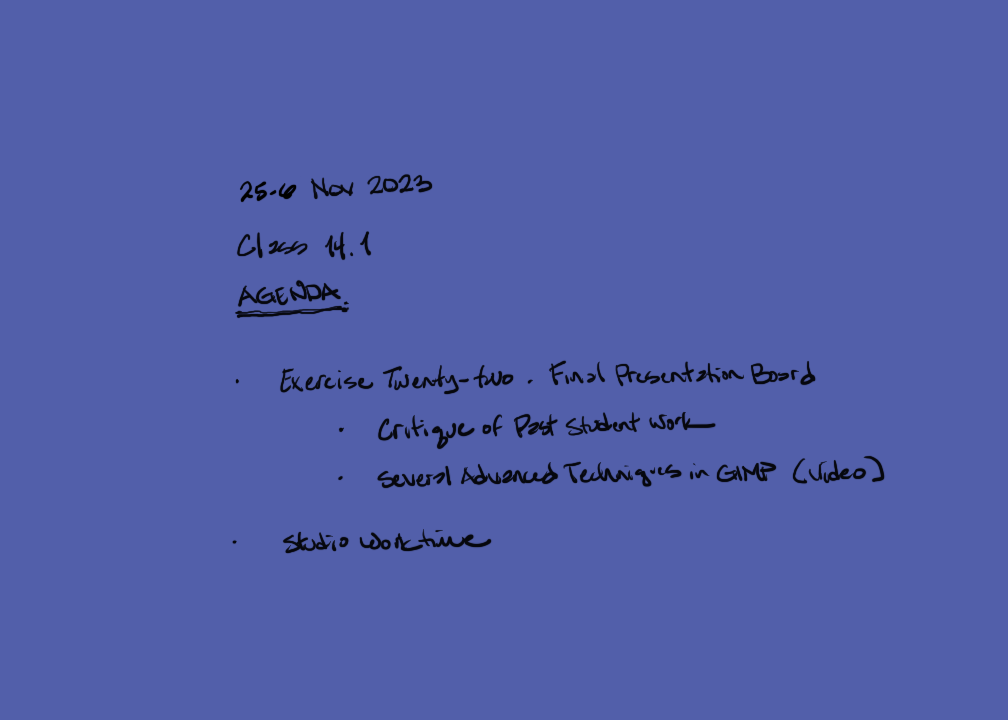 25-6 Nov 2023
Class 14.1
AGENDA.
· Exercise Twenty-two . Final Presentation Board
· Critique of Past Student Work
· Several Advanced Techniques in GIMP (Video)
· Studio Worktime